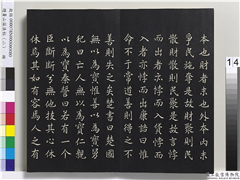 本也財者末也外本內末
爭民施奪是故財聚則民
散財散則民聚是故言悖
而出者亦悖而入貨悖而
入者亦悖而出康誥曰惟
命不于常道善則得之不
善則失之矣楚書曰楚國
無以為寶惟善以為寶舅
犯曰亡人無以為寶仁親
以為寶秦誓曰若有一个
臣斷斷兮無他技其心休
休焉其如有容焉人之有
14